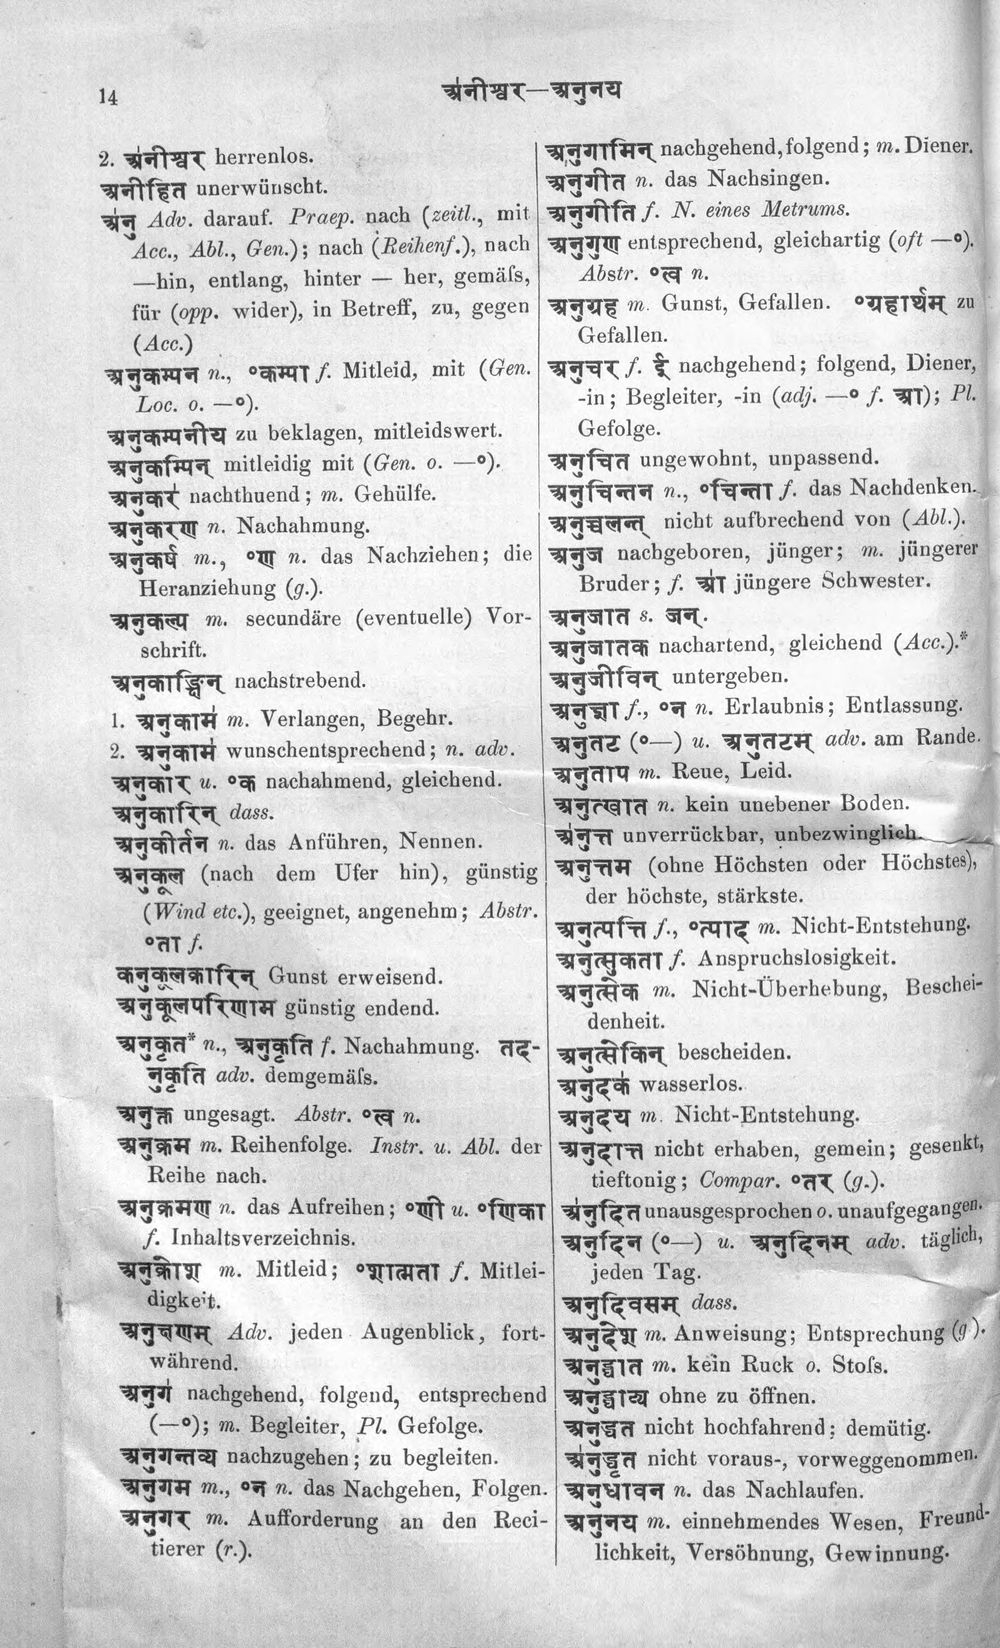 14
अ॑नीश्वर—अनुनय
2. अ॑नीश्वर herrenlos.
अनीहित unerwünscht.
अ॑नु Adv. darauf. Praep. nach (zeitl., mit
Acc., Abl., Gen.); nach (Reihenf.), nach
—hin, entlang, hinter — her, gemäſs,
für (opp. wider), in Betreff, zu, gegen
(Acc.)
अनुकम्पन n., °कम्पा f. Mitleid, mit (Gen.
Loc. o. —°).
अनुकम्पनीय zu beklagen, mitleidswert.
अनुकम्पिन् mitleidig mit (Gen. o. —°).
अनुकर॑ nachthuend; m. Gehülfe.
अनुकरण n. Nachahmung.
अनुकर्ष m., °ण n. das Nachziehen; die
Heranziehung (g.).
अनुकल्प m. secundäre (eventuelle) Vor-
schrift.
अनुकाङ्क्षिन् nachstrebend.
1. अनुकाम॑ m. Verlangen, Begehr.
2. अनुकाम॑ wunschentsprechend; n. adv.
अनुकार u. °क nachahmend, gleichend.
अनुकारिन् dass.
अनुकीर्तन n. das Anführen, Nennen.
अनुकूल (nach dem Ufer hin), günstig
(Wind etc.), geeignet, angenehm; Abstr.
°ता f.
कनुकूलकारिन् Gunst erweisend.
अनुकूलपरिणाम günstig endend.
अनुकृत* n., अनुकृति f. Nachahmung. तद-
नुकृति adv. demgemäſs.
अनुक्त ungesagt. Abstr. °त्व n.
अनुक्रम m. Reihenfolge. Instr. u. Abl. der
Reihe nach.
अनुक्रमण n. das Aufreihen; °णी u. °णिका
f. Inhaltsverzeichnis.
अनुक्रोश m. Mitleid; °शात्मता f. Mitlei-
digkeit.
अनुक्षणम् Adv. jeden Augenblick, fort-
während.
अनुग॑ nachgehend, folgend, entsprechend
(—°); m. Begleiter, Pl. Gefolge.
अनुगन्तव्य nachzugehen; zu begleiten.
अनुगम m., °न n. das Nachgehen, Folgen.
अनुगर m. Aufforderung an den Reci-
tierer (r.).
अनुगामिन् nachgehend, folgend; m. Diener.
अनुगीत n. das Nachsingen.
अनुगीति f. N. eines Metrums.
अनुगुण entsprechend, gleichartig (oft —°).
Abstr. °त्व n.
अनुग्रह m. Gunst, Gefallen. °ग्रहार्थम् zu
Gefallen.
अनुचर f. ई nachgehend; folgend, Diener,
-in; Begleiter, -in (adj. —° f. आ); Pl.
Gefolge.
अनुचित ungewohnt, unpassend.
अनुचिन्तन n., °चिन्ता f. das Nachdenken.
अनुच्चलन्त् nicht aufbrechend von (Abl.).
अनुज nachgeboren, jünger; m. jüngerer
Bruder; f. आ॑ jüngere Schwester.
अनुजात s. जन्.
अनुजातक nachartend, gleichend (Acc.).*
अनुजीविन् untergeben.
अनुज्ञा f., °न n. Erlaubnis; Entlassung.
अनुतट (°—) u. अनुतटम् adv. am Rande.
अनुताप m. Reue, Leid.
अनुत्खात n. kein unebener Boden.
अ॑नुत्त unverrückbar, unbezwinglich.
अनुत्तम (ohne Höchsten oder Höchstes),
der höchste, stärkste.
अनुत्पत्ति f., °त्पाद m. Nicht-Entstehung.
अनुत्सुकता f. Anspruchslosigkeit.
अनुत्सेक m. Nicht-Überhebung, Beschei-
denheit.
अनुत्सेकिन् bescheiden.
अनुदक॑ wasserlos.
अनुदय m. Nicht-Entstehung.
अनुदात्त nicht erhaben, gemein; gesenkt,
tieftonig; Compar. °तर (g.).
अ॑नुदित unausgesprochen o. unaufgegangen.
अनुदिन (°—) u. अनुदिनम् adv. täglich,
jeden Tag.
अनुदिवसम् dass.
अनुदेश m. Anweisung; Entsprechung (g).
अनुद्घात m. kein Ruck o. Stoſs.
अनुद्घाट्य ohne zu öffnen.
अनुद्धत nicht hochfahrend; demütig.
अ॑नुद्धृत nicht voraus-, vorweggenommen.
अनुधावन n. das Nachlaufen.
अनुनय m. einnehmendes Wesen, Freund-
lichkeit, Versöhnung, Gewinnung.